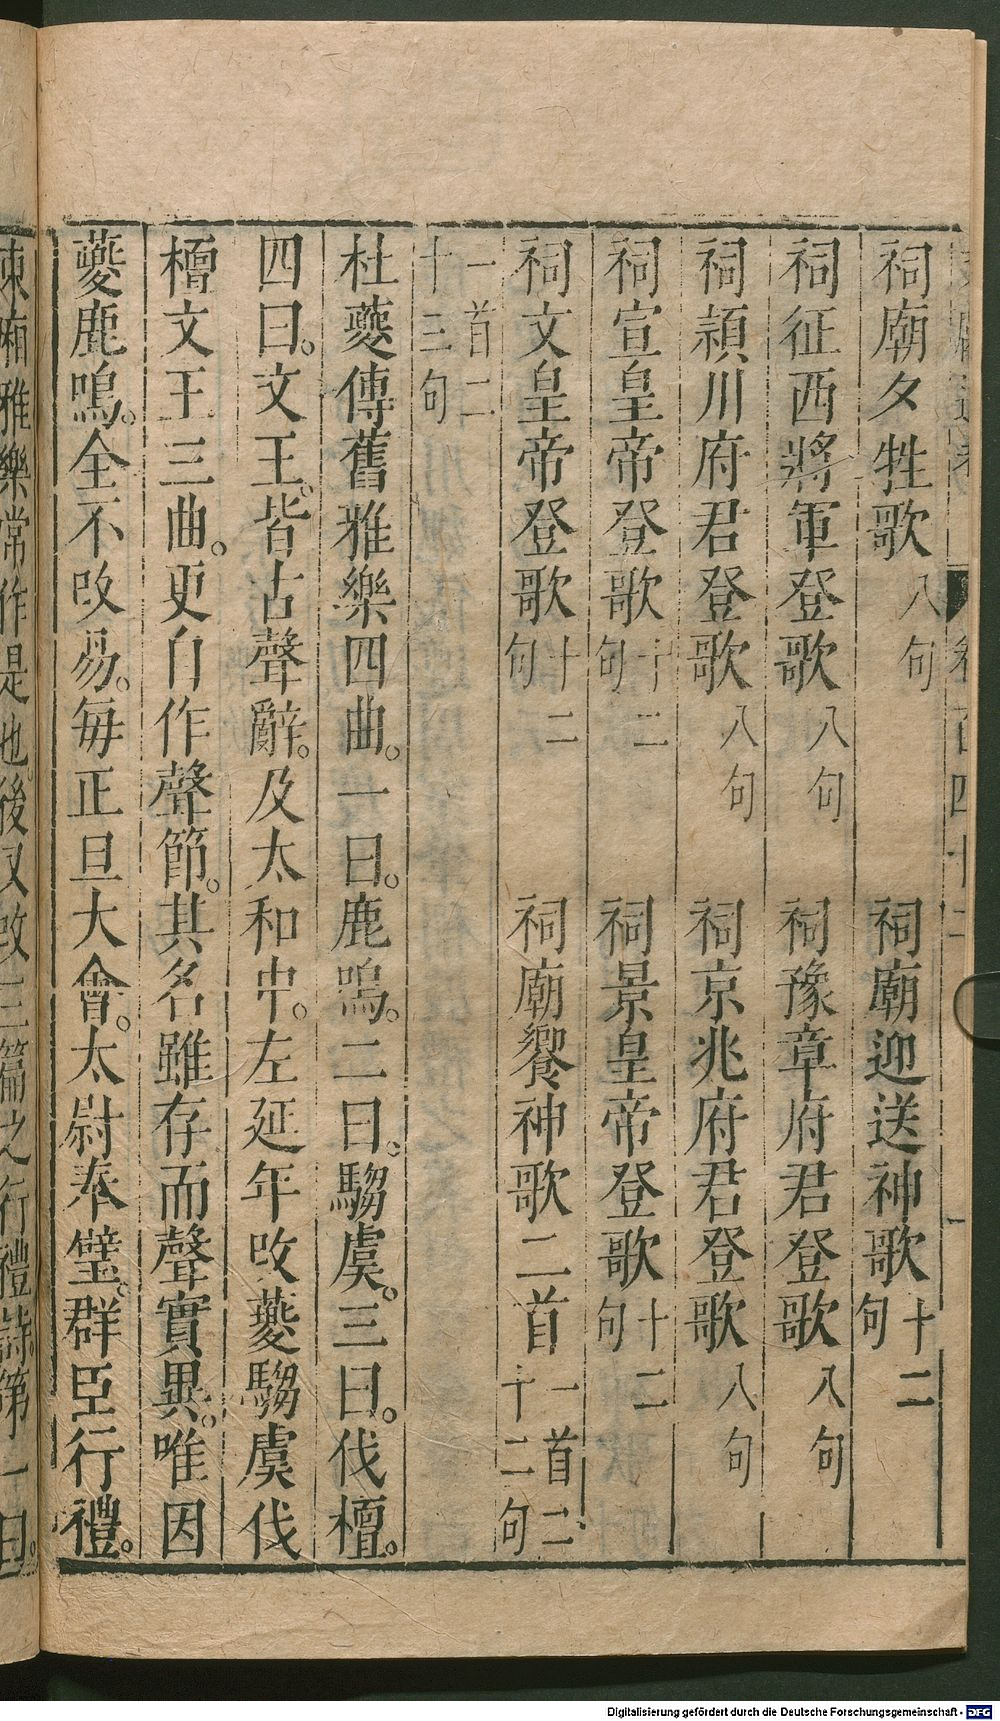 祠廟夕牲歌八句 祠廟迎送神歌十二句
祠征西將軍登歌八句 祠豫章府君登歌八句
祠潁川府君登歌八句 祠京兆府君登歌八句
祠宣皇帝登歌十二句 祠景皇帝登歌十二句
祠文皇帝登歌十二句 祠廟饗神歌二首一首二十二句
一首二十三句
杜夔傳舊雅樂四曲。一曰。鹿鳴。二曰。騶虞。三曰。伐檀。
四曰。文王。皆古聲辭。及太和中。左延年改夔騶虞伐
檀文王三曲。更自作聲節。其名雖存而聲實異。唯因
夔鹿鳴。全不改易。每正旦大會。太尉奉璧。群臣行禮。
東廂雅樂常作是也。後又改三篇之行禮詩。第一曰。
Digitalisierung gefördert durch die Deutsche Forschungsgemeinschaft - DFG